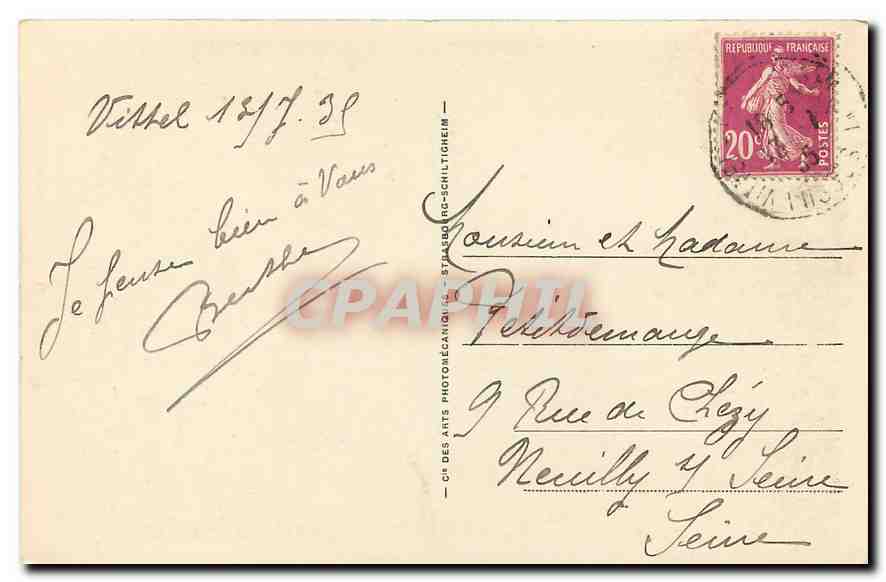 Vittel 13/7.35
Je pense bien à Vous
Berthe
Cie DES ARTS PHOTOMÉCANIQUES - STRASBOURG-SCHILTIGHEIM
RÉPUBLIQUE FRANÇAISE
20c
POSTES
Monsieur et Madame
Petitdemange
9 Rue de Chézy
Neuilly s/ Seine
Seine
CPAPHIL